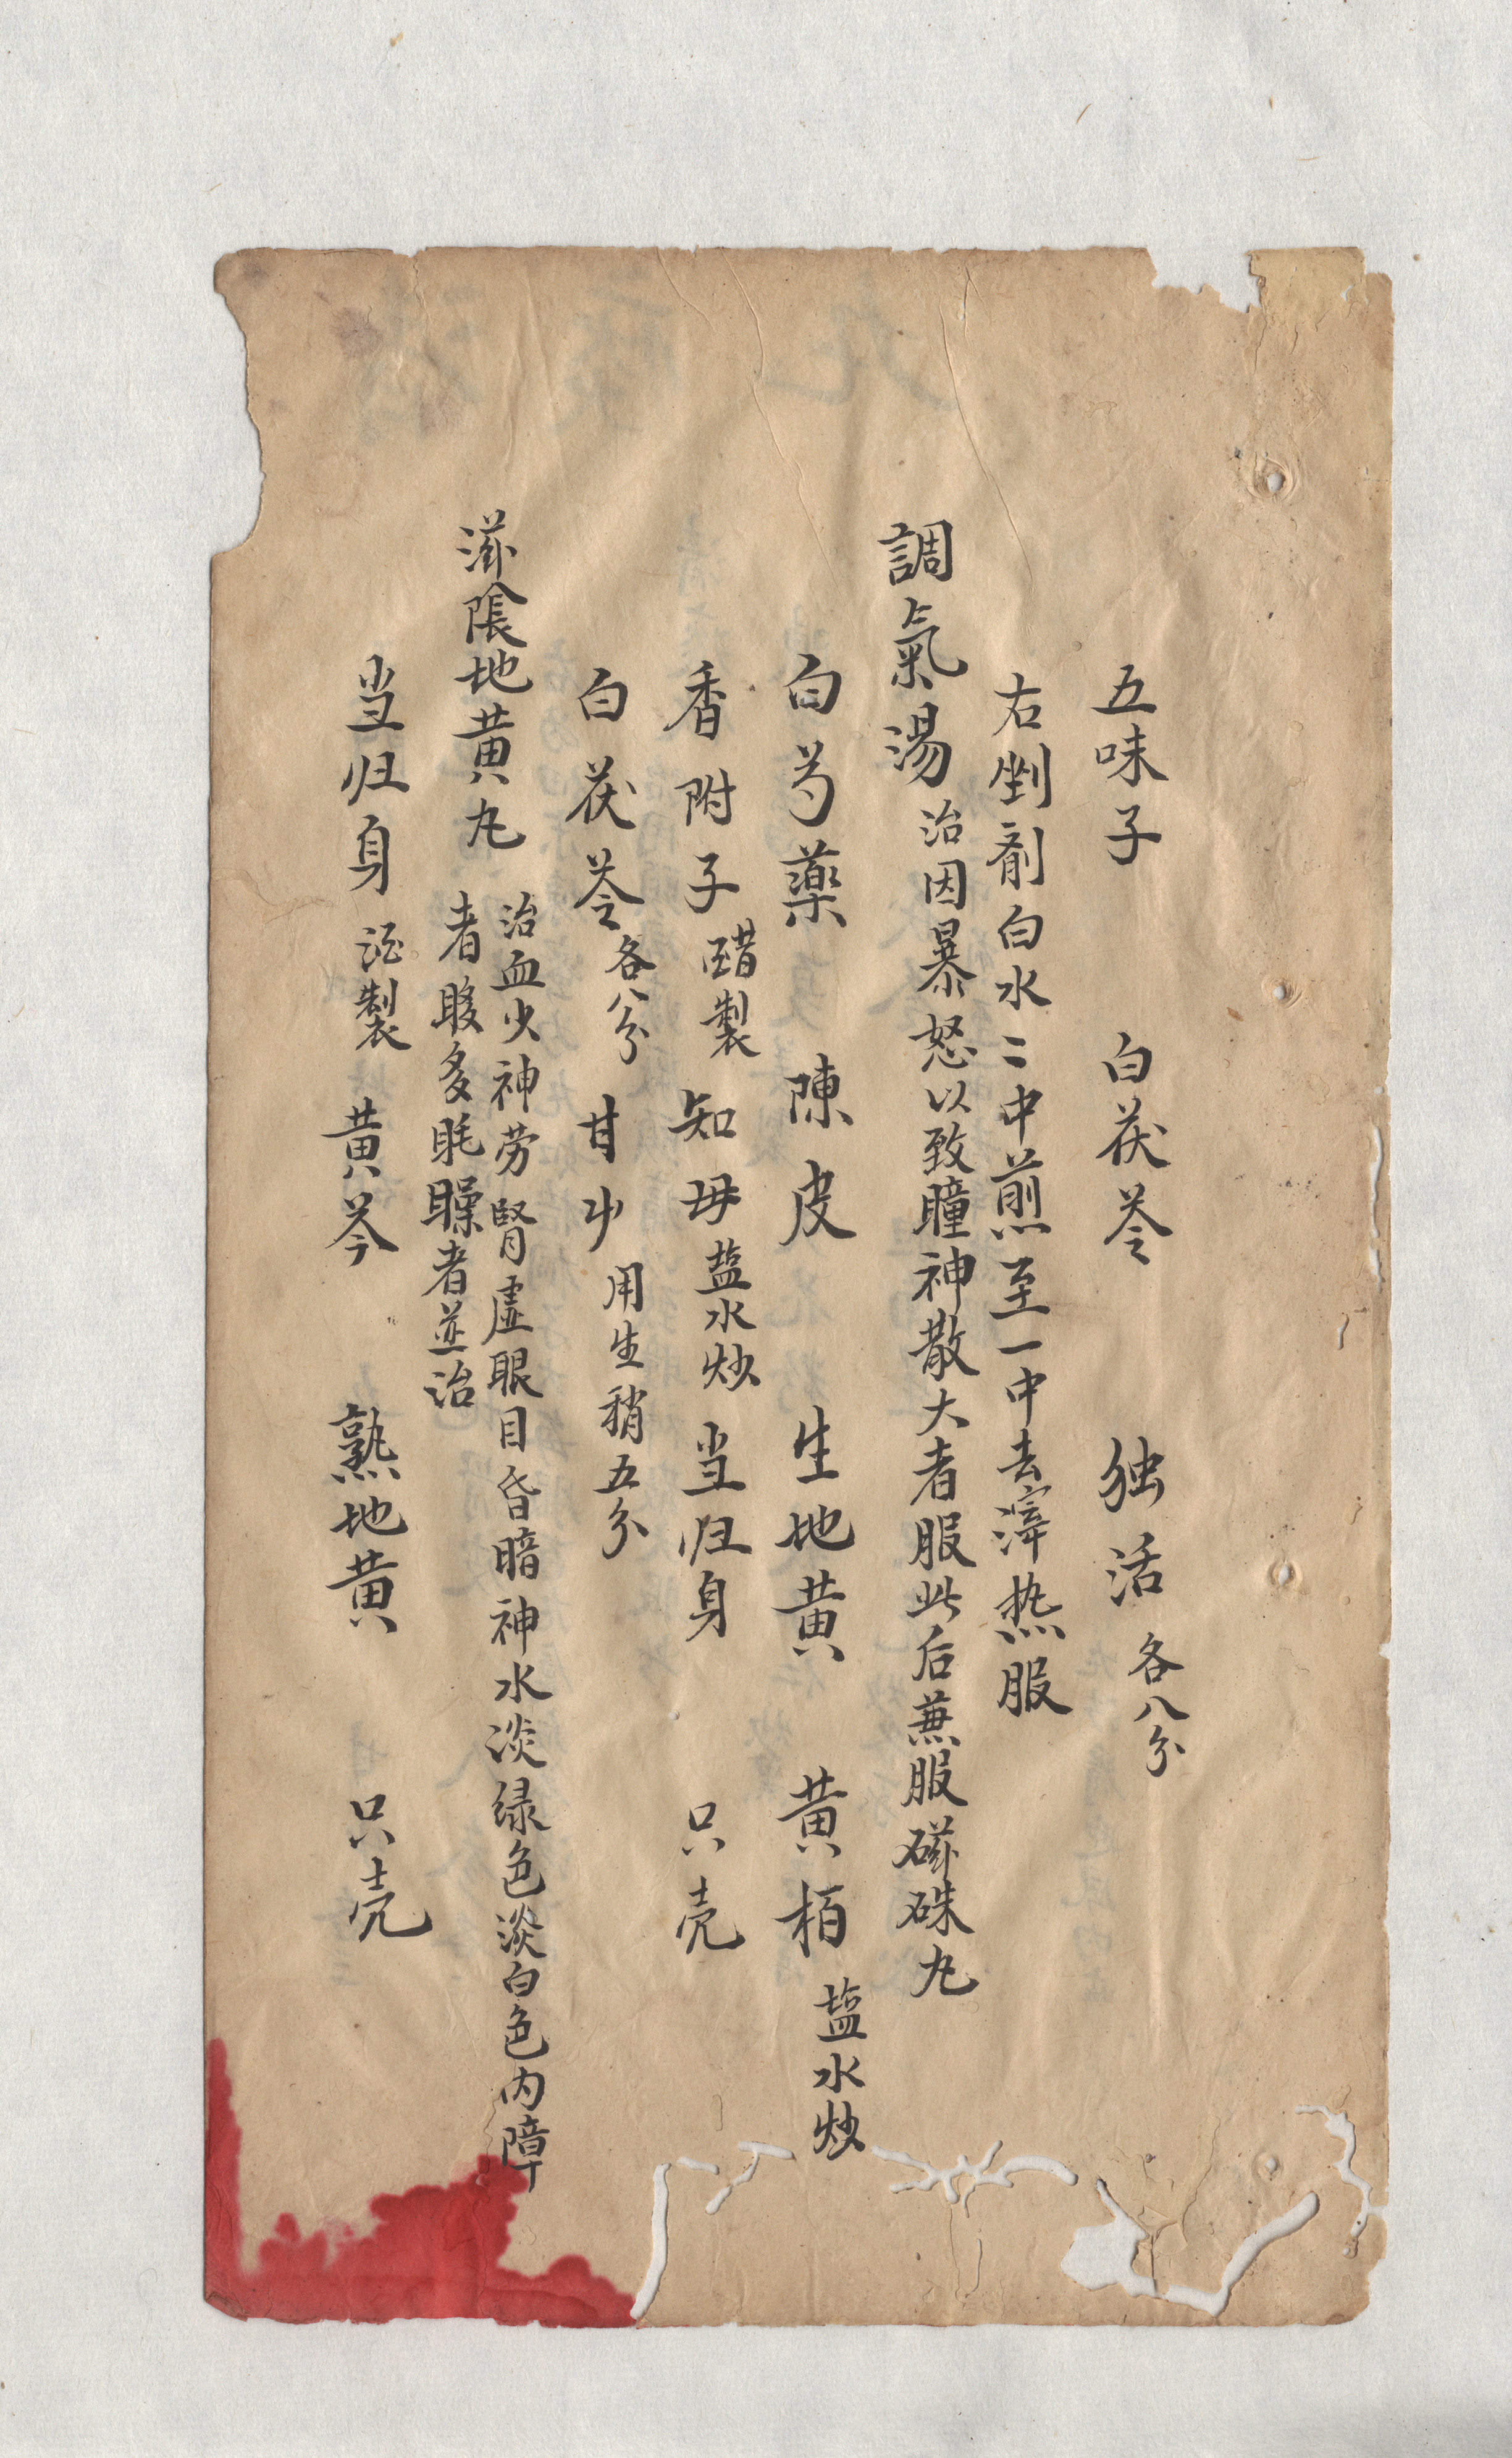 五味子 白茯苓 独活 各八分
右剉剤白水二中煎至一中去滓热服
調氣湯 治因暴怒以致瞳神散大者服此后兼服磁硃丸
白芍藥 陳皮 生地黄 黄栢 塩水炒
香附子 醋製 知母 塩水炒 当归身 只壳
白茯苓 各八分 甘屮 用生稍五分
滋陰地黄丸 治血少神劳腎虚眼目昏暗神水淡绿色淡白色内障
者眵多眊矂者並治
当归身 酒製 黄芩 熟地黄 只壳